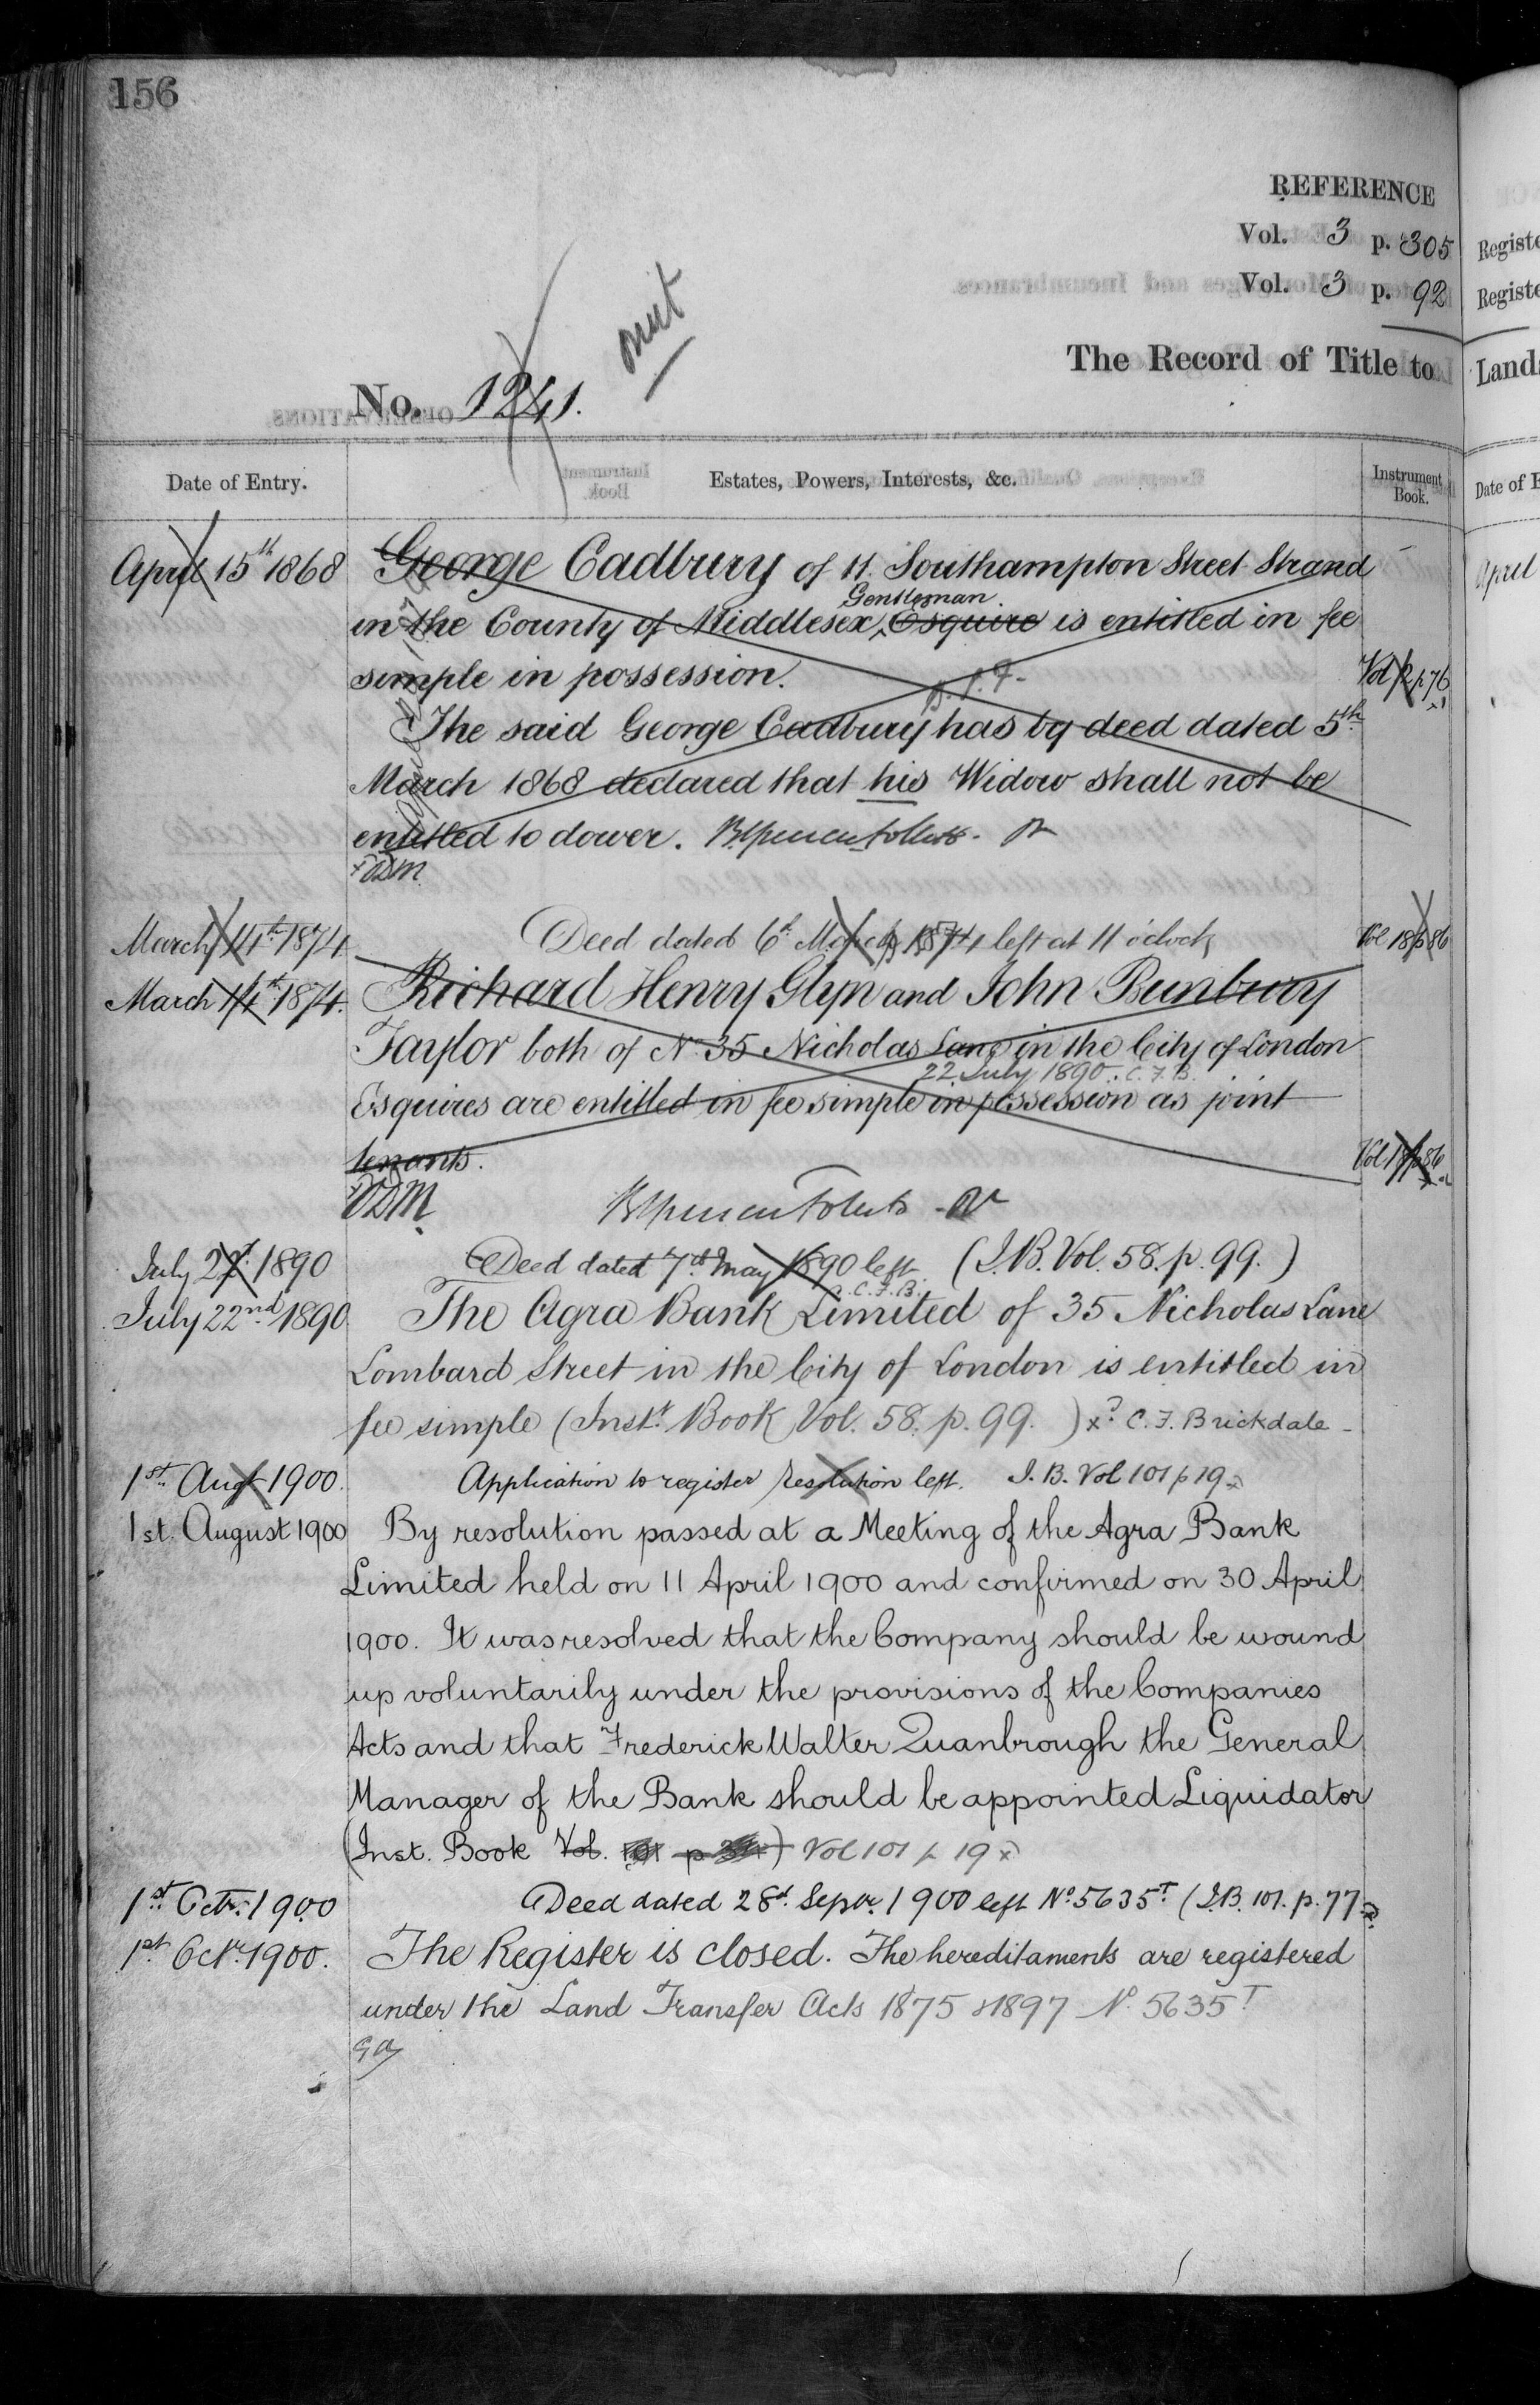 156
REFERENCE
Vol. 3 p. 305
Vol. 3 p. 92
The Record of Title to
No. 1241.
Date of Entry.
Estates, Powers, Interests, &c.
Instrument Book.
April 15th 1868 George Cadbury of 11. Southampton Street Strand
Gentleman
in the County of Middlesex, Esquire is entitled in fee
simple in possession. Vol 2 p 76
The said George Cadbury has by deed dated 5th
March 1868 declared that his Widow shall not be
entitled to dower.
March 14th 1874 Deed dated 6th March 1874 left at 11 o'clock Vol 18 p 86
March 14th 1874. Richard Henry Glyn and John Bunbury
Taylor both of No 35 Nicholas Lane in the City of London
22 July 1890. C. F. B.
Esquires are entitled in fee simple in possession as joint
tenants. Vol 18 p 86
July 22d 1890 Deed dated 7th May 1890 left (I.B. Vol. 58. p. 99.)
C. F. B.
July 22nd 1890 The Agra Bank Limited of 35 Nicholas Lane
Lombard Street in the City of London is entitled in
fee simple (Inst.t Book Vol. 58. p. 99.) C. F. Brickdale
1st Augt 1900. Application to register resolution left. I. B. Vol 101 p 19
1st. August 1900 By resolution passed at a Meeting of the Agra Bank
Limited held on 11 April 1900 and confirmed on 30 April
1900. It was resolved that the Company should be wound
up voluntarily under the provisions of the Companies
Acts and that Frederick Walter Quanbrough the General
Manager of the Bank should be appointed Liquidator
(Inst. Book Vol. p ) Vol 101 p 19
1st Octr. 1900 Deed dated 28th Sepr. 1900 left No 5635T (I.B. 101. p. 77
1st Octr. 1900. The Register is closed. The hereditaments are registered
under the Land Transfer Acts 1875 & 1897 No 5635T
Registe
Registe
Lands
Date of E
April